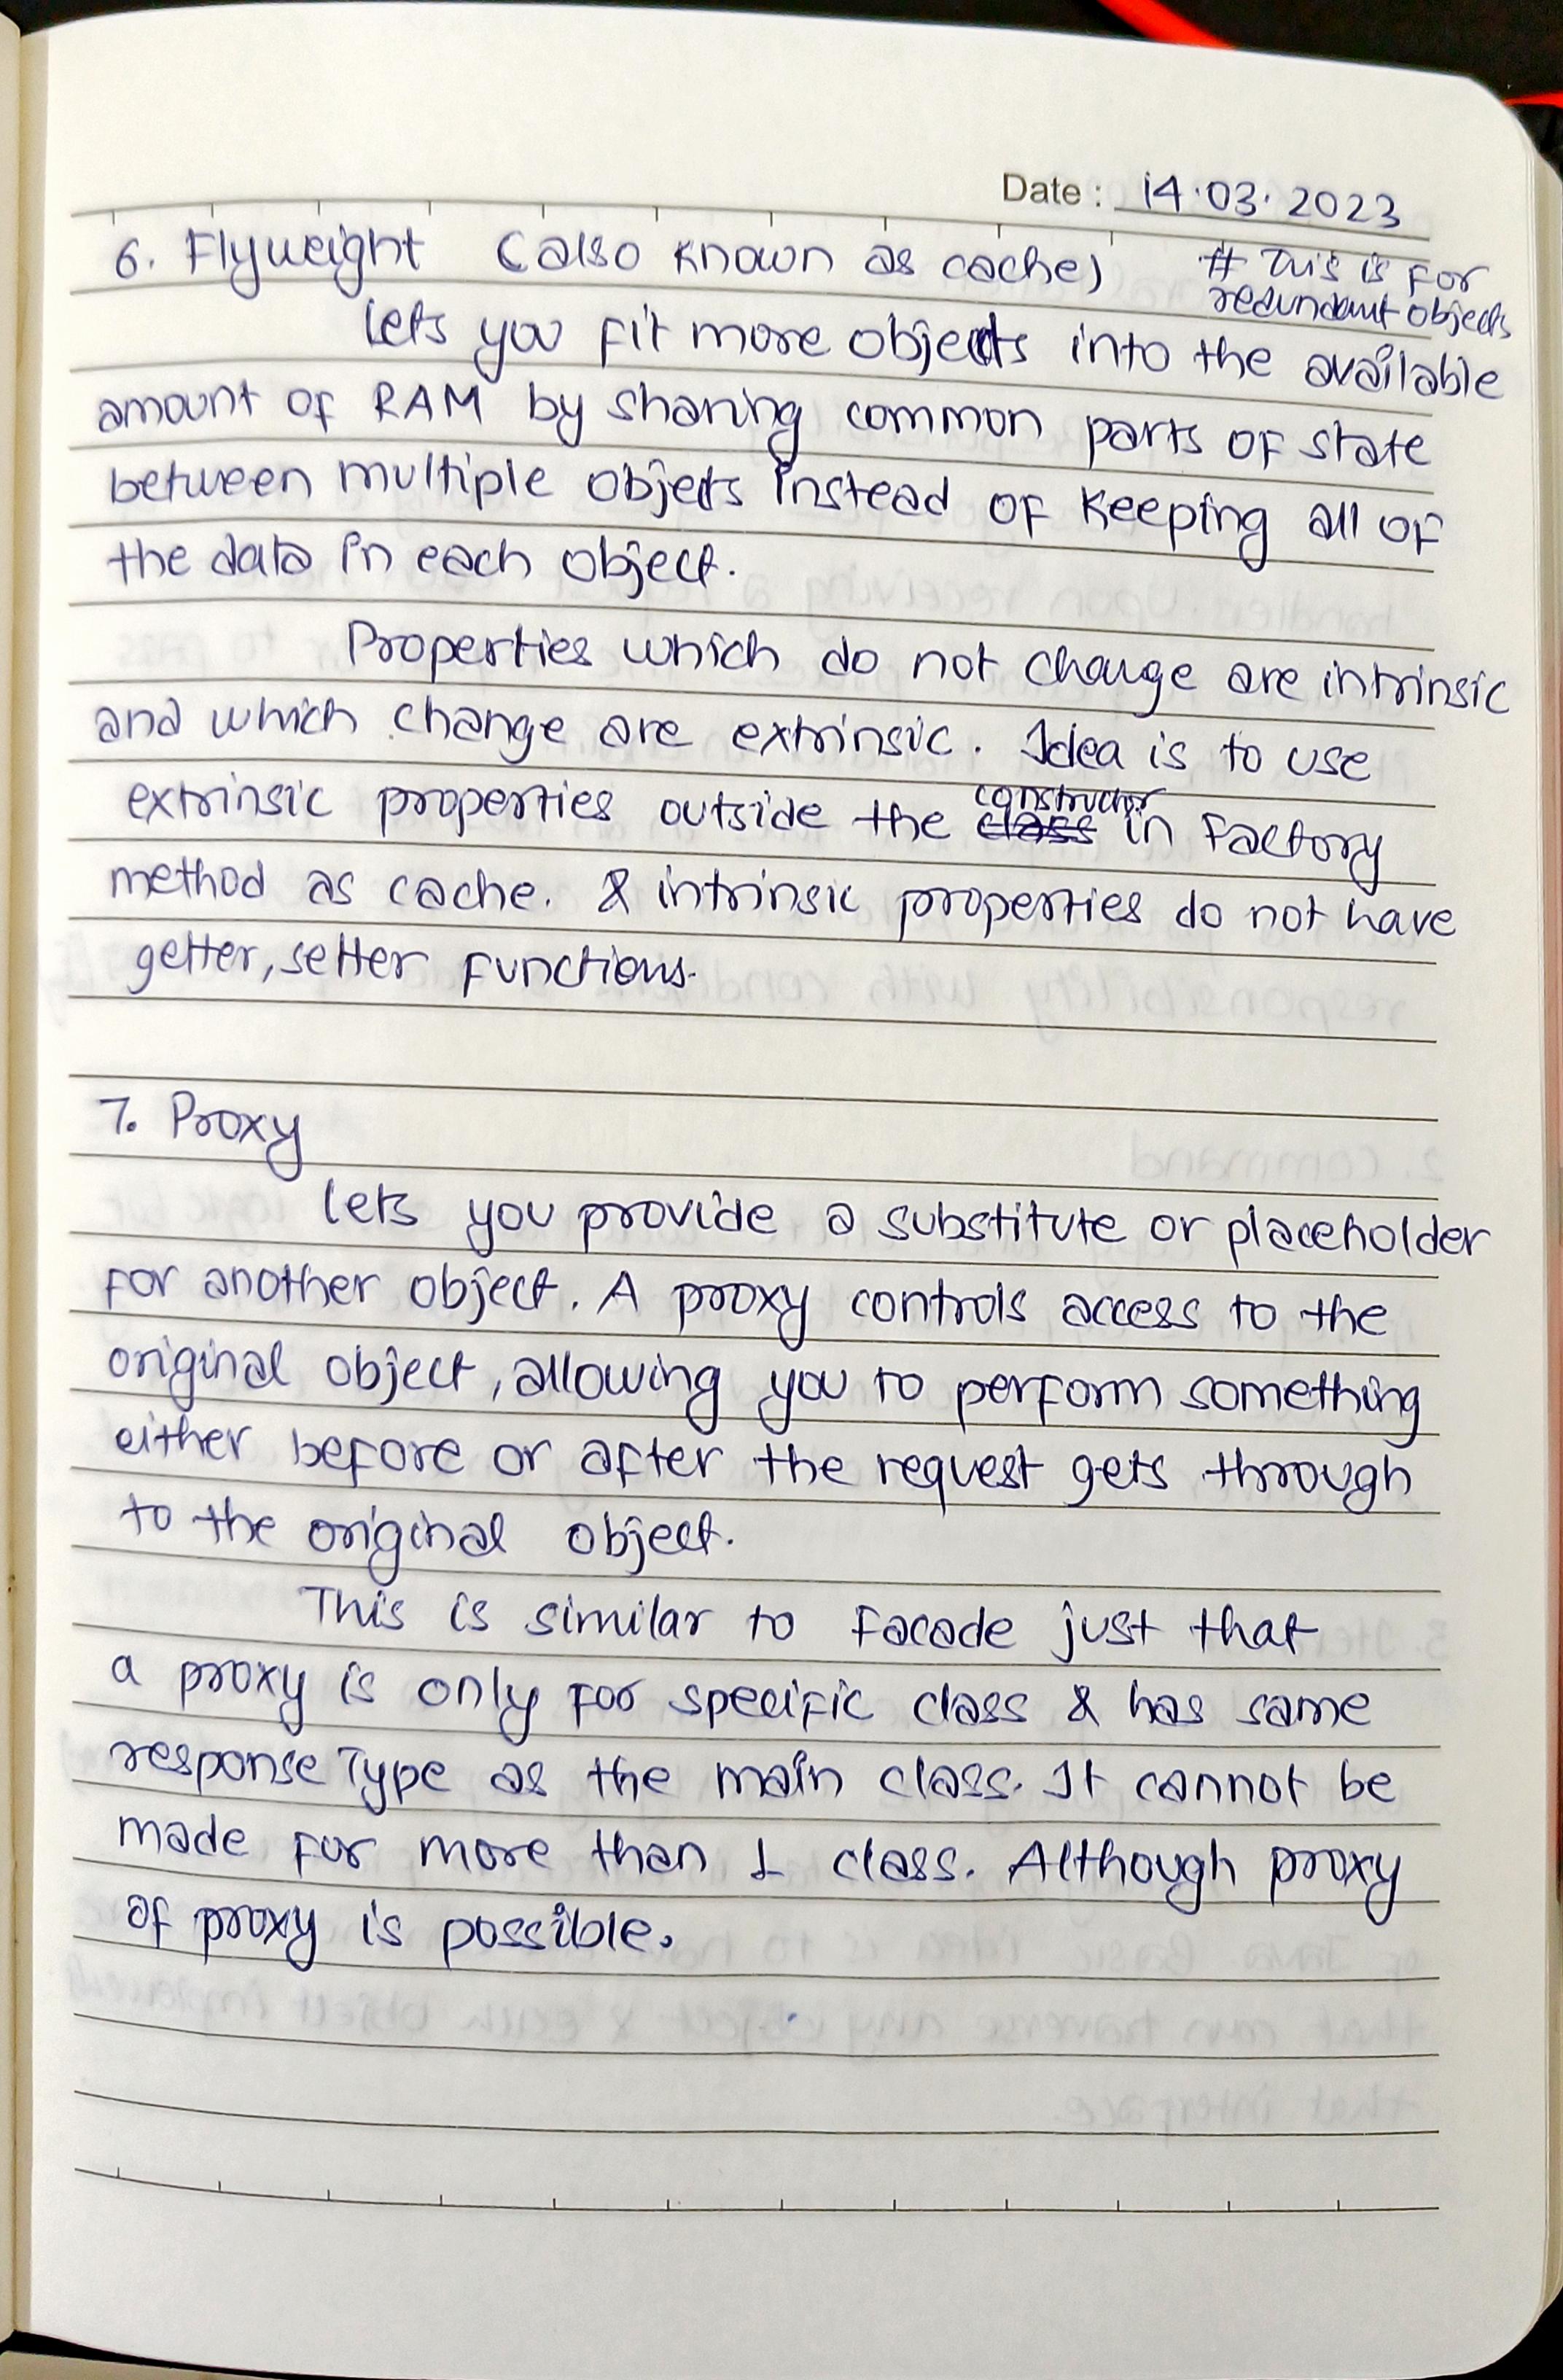 Date : 14.03.2023
6. Flyweight (also known as cache)
# This is for
redundant objects
lets you fit more objects into the available
amount of RAM by sharing common parts of state
between multiple objects instead of keeping all of
the data in each object.
Properties which do not change are intrinsic
and which change are extrinsic. Idea is to use
constructor
extrinsic properties outside the class in factory
method as cache. & intrinsic properties do not have
getter, setter functions.
7. Proxy
lets you provide a substitute or placeholder
for another object. A proxy controls access to the
original object, allowing you to perform something
either before or after the request gets through
to the original object.
This is similar to facade just that
a proxy is only for specific class & has same
response Type as the main class. It cannot be
made for more than 1 class. Although proxy
of proxy is possible.